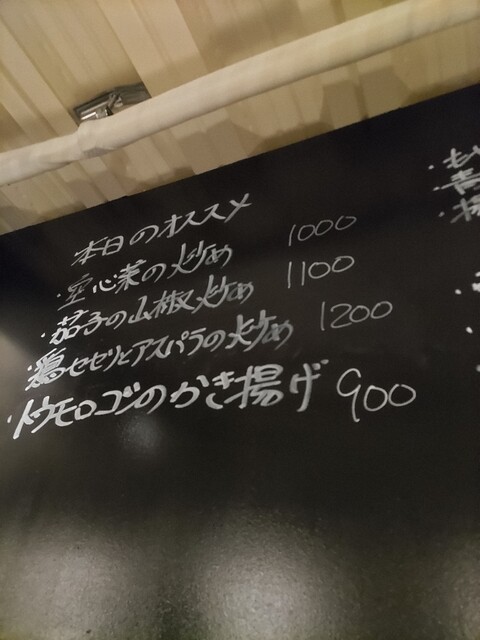 本日のオススメ
・空心菜の炒め 1000
・茄子の山椒炒め 1100
・鶏セセリとアスパラの炒め 1200
・トウモロコシのかき揚げ 900
・も
青
・揚